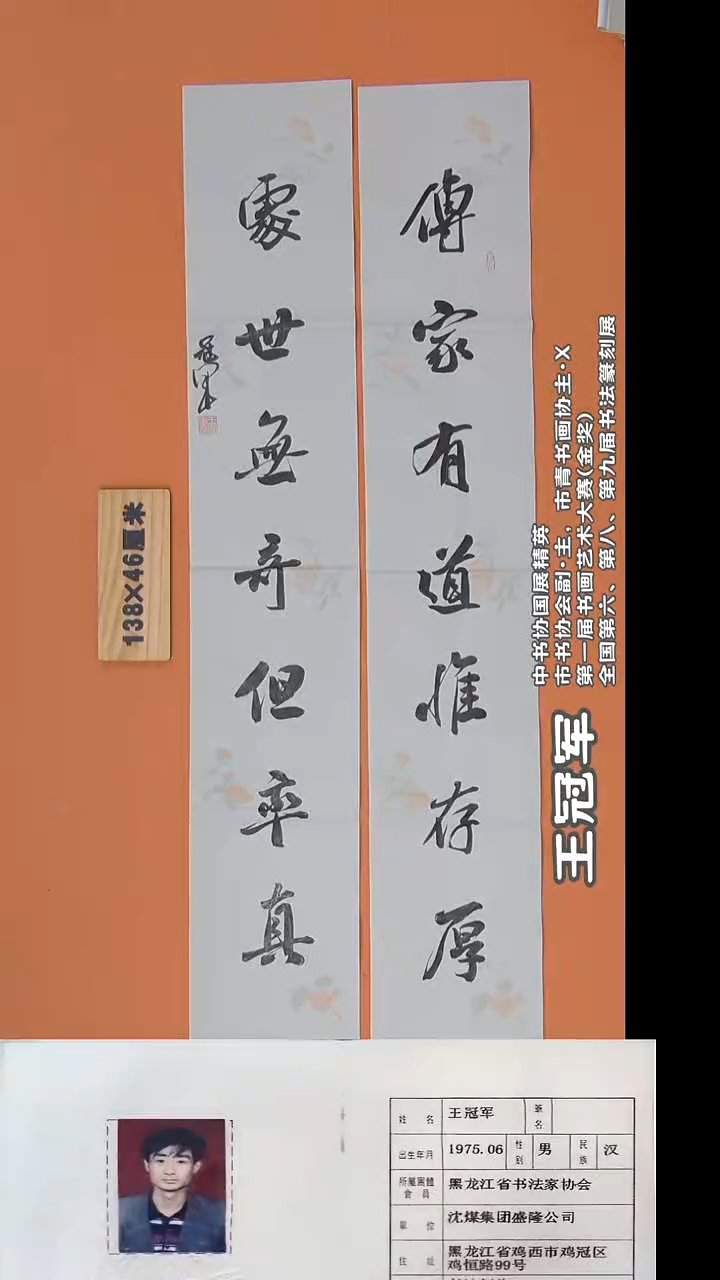 傳家有道惟存厚
處世無奇但率真
冠軍
138×46厘米
中书协国展精英
市书协会副·主，市青书画协主·X
第一届书画艺术大赛(金奖)
全国第六、第八、第九届书法篆刻展
王冠军
姓 名 王冠军 筆名
出生年月 1975.06 性別 男 民族 汉
所屬團體會員 黑龙江省书法家协会
單 位 沈煤集团盛隆公司
住 址 黑龙江省鸡西市鸡冠区
鸡恒路99号